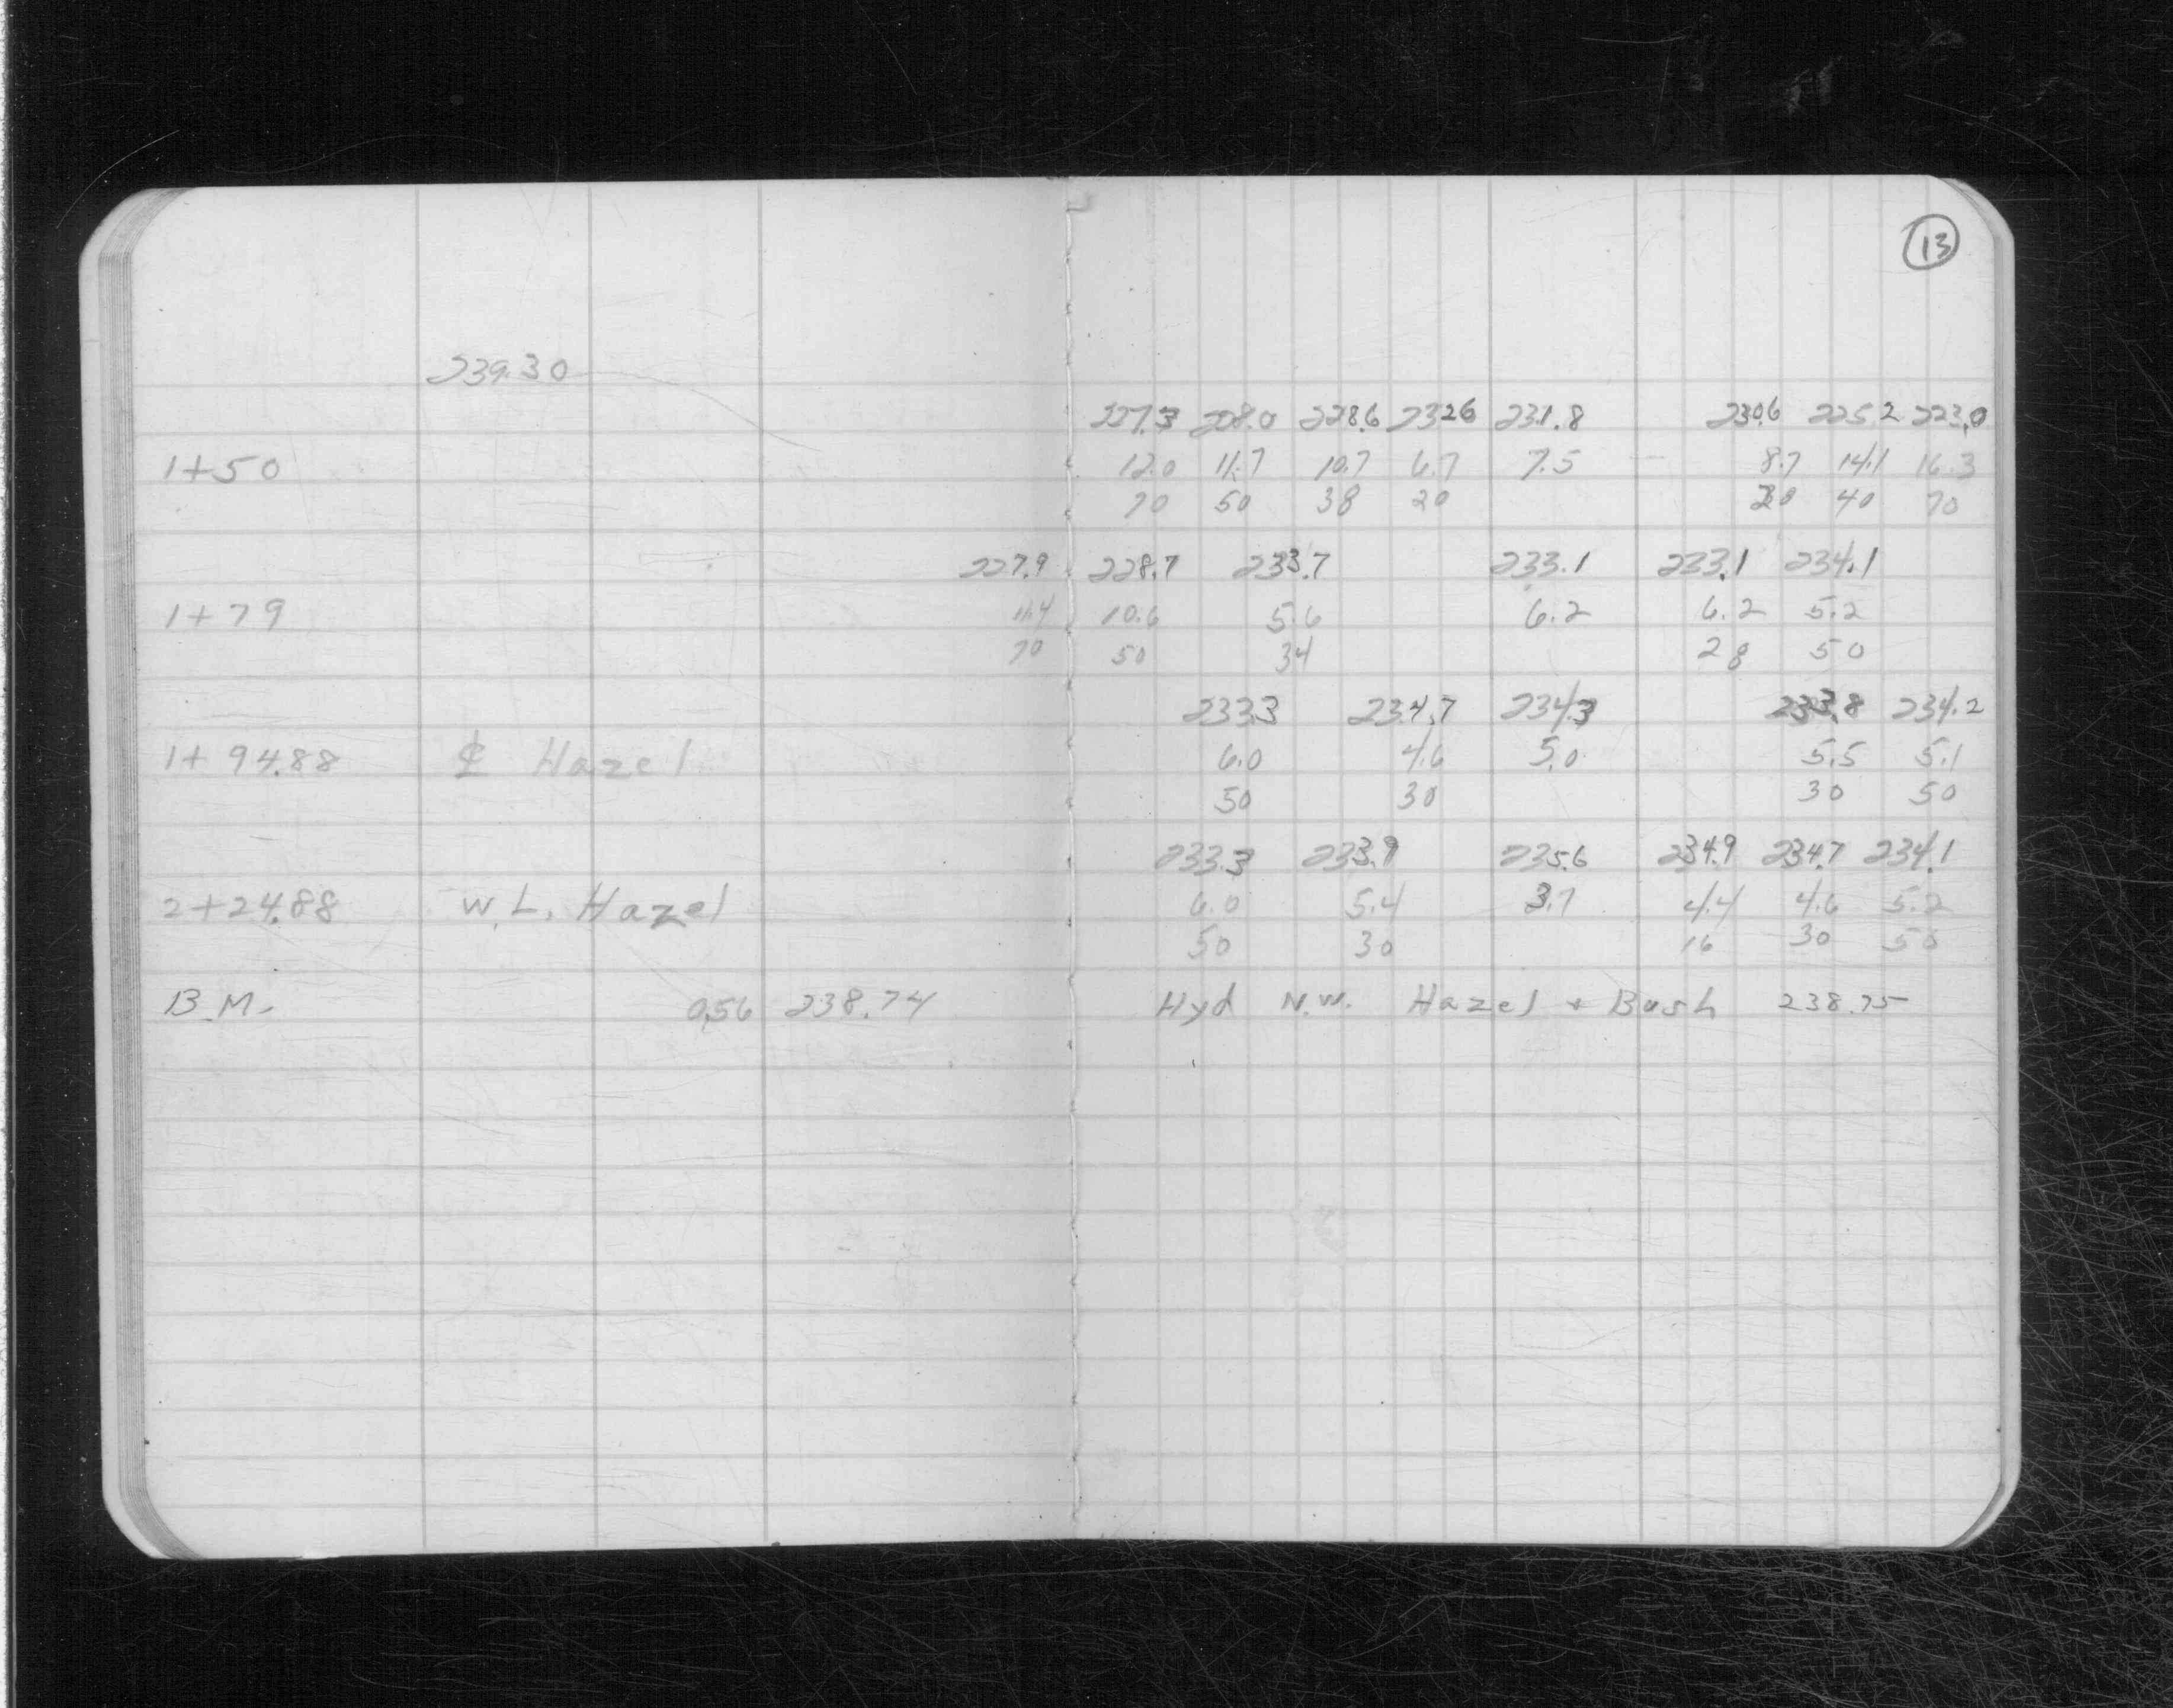 13
239.30
227.3 228.0 228.6 232.6 231.8 230.6 225.2 223.0
1+50 12.0 11.7 10.7 6.7 7.5 8.7 14.1 16.3
70 50 38 20 20 40 70
227.9 228.7 233.7 233.1 233.1 234.1
1+79 11.4 10.6 5.6 6.2 6.2 5.2
70 50 34 28 50
233.3 234.7 234.3 233.8 234.2
1+94.88 ℄ Hazel 6.0 4.6 5.0 5.5 5.1
50 30 30 50
233.3 233.9 235.6 234.9 234.7 234.1
2+24.88 W.L. Hazel 6.0 5.4 3.7 4.4 4.6 5.2
50 30 16 30 50
B.M. 0.56 238.74 Hyd N.W. Hazel + Bush 238.75